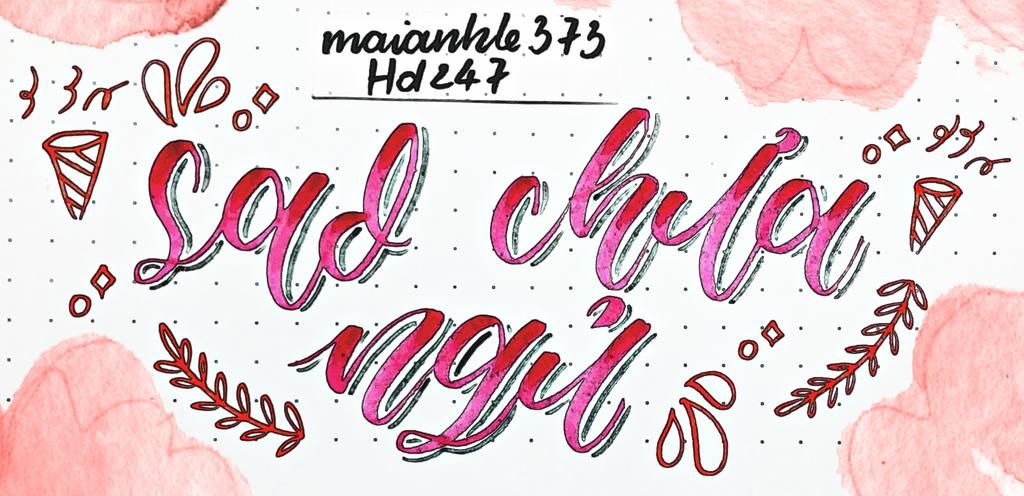 maianhle 373
Hd247
sad chưa
ngủ